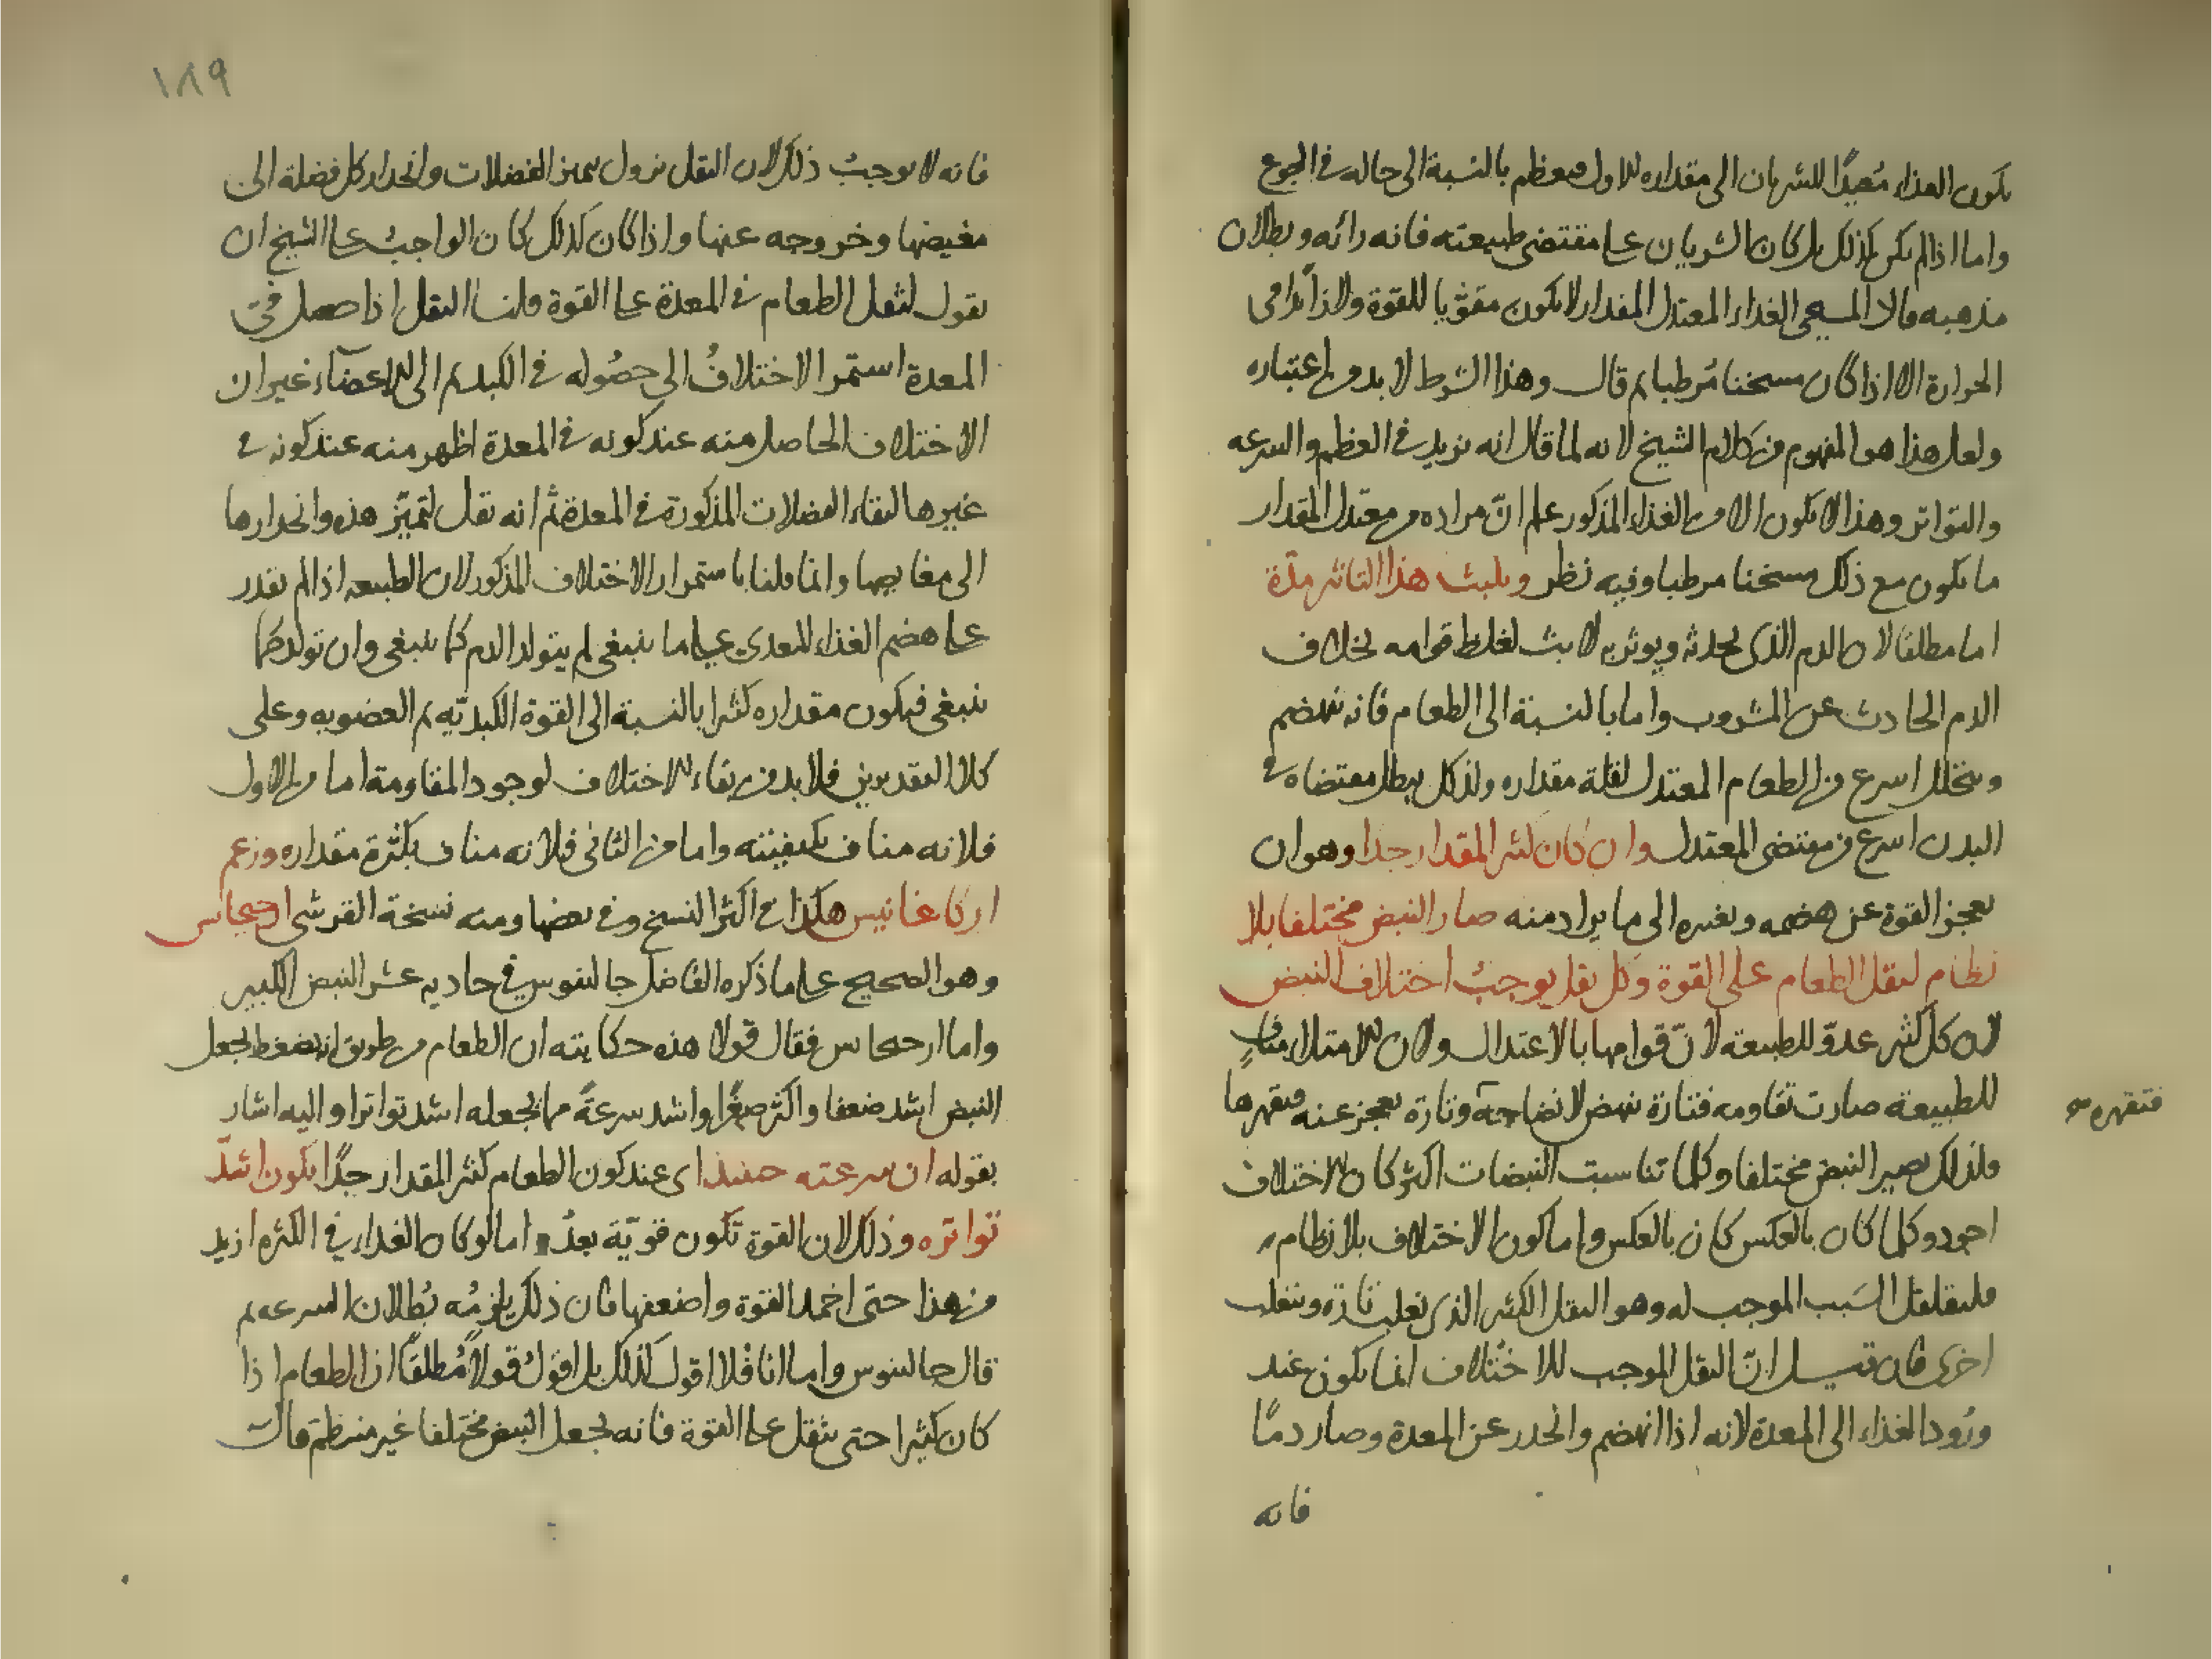 يكون الغذاء مُعيدًا للشريان الى مقداره الاول فيعظم بالنسبة الى حاله في الجوع
واما اذا لم يكن كذلك بل كان الشريان على مقتضى طبيعته فانه رائه وبطلان
مذهبه قال المسيحي الغذاء المعتدل المقدار لا يكون مقوّيا للقوة والذائدا في
الحرارة الا اذا كان مسخنا مُرطبا ثم قال وهذا الشرط لا بد من اعتباره
ولعل هذا هو المفهوم من كلام الشيخ لانه لما قال انه يزيد في العظم والسرعه
والتواتر وهذا لا يكون الا من الغذاء المذكور علم انّ مراده من معتدل المقدار
ما يكون مع ذلك مسخنا مرطبا وفيه نظر ويلبث هذا التاثير مدّة
اما مطلقا لان الدم الذي يحدثه ويوثر به لابث لغلظ قوامه بخلاف
الدم الحادث عن المشروب واما بالنسبة الى الطعام فانه ينهضم
ويتحلل اسرع من الطعام المعتدل لقلة مقداره ولذلك يبطل مقتضاه في
البدن اسرع من مقتضى المعتدل وان كان كثير المقدار جدا وهو ان
يعجز القوة عن هضمه وتغيره الى ما يراد منه صار النبض مختلفا بلا
نظام لثقل الطعام على القوة وكل ثقل يوجبُ اختلاف النبض
لان كل كثير عدوّ للطبيعة لانّ قوامها بالاعتدال ولان الامتلاء منافٍ
للطبيعة صارت تقاومه فتارة تنهض لانضاجه وتارة يعجز عنه فيقهرها
فتقهره
ولذلك يصير النبض مختلفا وكلما تناسبت النبضات اكثر كان الاختلاف
اجود وكلما كان بالعكس كان بالعكس واما كون الاختلاف بلا نظام
فلتقلقل السَبب الموجب له وهو الثقل الكثير الذي تغلب تارة وتنغلب
اخرى فان قيل انّ الثقل الموجب للاختلاف انما يكون عند
ورُود الغذاء الى المعدة لانه اذا انهضم وانحدر عن المعدة وصار دمًا
فانه
١٨٩
فانه لا يوجبُ ذلك لان الثقل يزول بتميز الفضلات وانحدار كل فضلة الى
مغيضها وخروجه عنها واذا كان كذلك كان الواجبُ على الشيخ ان
يقول لثقل الطعام في المعدة على القوة قلنا الثقل اذا حصل في
المعدة استمر الاختلافُ الى حصُوله في الكبد ثم الى الاعضاء غير ان
الاختلاف الحاصل منه عند كونه في المعدة اظهر منه عند كونه في
غيرها لبقاء الفضلات المذكورة في المعدة ثم انه تقل لتميّز هذه وانحدارها
الى مغايضها وانما قلنا باستمرار الاختلاف المذكور لان الطبيعه اذا لم تقدر
على هضم الغذاء المعدي على ما ينبغي لم يتولد الدم كما ينبغي وان تولد كما
ينبغي فيكون مقداره كثيرا بالنسبة الى القوة الكبديّه ثم العضويه وعلى
كلا التقديرين فلا بد من بقاء الاختلاف لوجود المقاومة اما من الاول
فلانه مناف بكيفيته واما من الثاني فلانه مناف بكثرة مقداره وزعم
اركاغانيس هكذا في اكثر النسخ وفي بعضها ومنه نسخة القرشي ارجيجاس
وهو الصحيح على ما ذكره الفاضل جالينوس في حاديه عشر النبض الكبير
واما ارجيجاس فقال قولا هذه حكايته ان الطعام من طريق انه يضغط يجعل
النبض اشد ضعفا واكثر صِغَرا واشد سرعةً مما يجعله اشد تواترا واليه اشار
بقوله ان سرعته حينئذ اي عند كون الطعام كثير المقدار جدًا يكون اشدّ
تواتره وذلك لان القوة تكون قويّة بعدُ واما لو كان الغذاء في الكثره ازيد
من هذا حتى اخمد القوة واضعفها فان ذلك يلزمُه بُطلان السرعه ثم
قال جالينوس واما انا فلا اقول كذلك بل اقولُ قولا مُطلقًا ان الطعام اذا
كان كثيرا حتى يثقل على القوة فانه يجعل النبض مختلفا غير منتظم قال